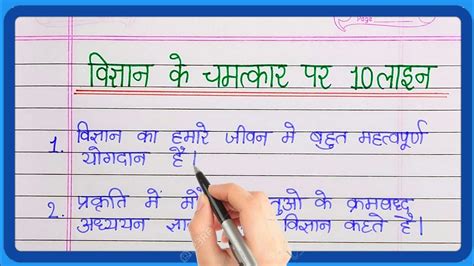 Page
विज्ञान के चमत्कार पर 10 लाइन
1. विज्ञान का हमारे जीवन मे बहुत महत्वपूर्ण
योगदान है।
2. प्रकृति में के क्रमबध्द
अध्ययन विज्ञान कहते है।